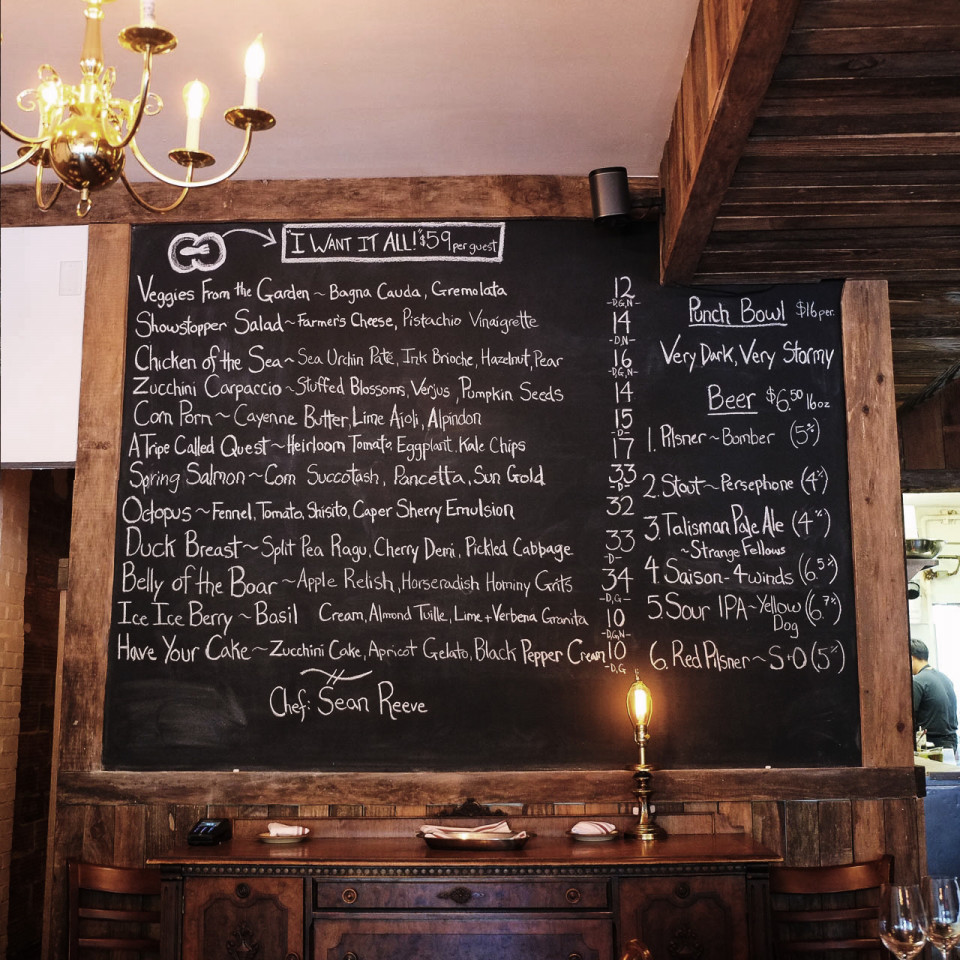 I WANT IT ALL! $59 per guest
Veggies From the Garden ~ Bagna Cauda, Gremolata 12
-D,G,N-
Showstopper Salad ~ Farmer's Cheese, Pistachio Vinaigrette 14
-D,N-
Chicken of the Sea ~ Sea Urchin Pate, Ink Brioche, Hazelnut, Pear 16
-D,G,N-
Zucchini Carpaccio ~ Stuffed Blossoms, Verjus, Pumpkin Seeds 14
Corn Porn ~ Cayenne Butter, Lime Aioli, Alpindon 15
-D-
A Tripe Called Quest ~ Heirloom Tomato, Eggplant, Kale Chips 17
Spring Salmon ~ Corn Succotash, Pancetta, Sun Gold 33
-D-
Octopus ~ Fennel, Tomato, Shisito, Caper Sherry Emulsion 32
Duck Breast ~ Split Pea Ragu, Cherry Demi, Pickled Cabbage 33
-D-
Belly of the Boar ~ Apple Relish, Horseradish Hominy Grits 34
-D,G-
Ice Ice Berry ~ Basil Cream, Almond Tuille, Lime + Verbena Granita 10
-D,G,N-
Have Your Cake ~ Zucchini Cake, Apricot Gelato, Black Pepper Cream 10
-D,G
Chef: Sean Reeve
Punch Bowl $16 per.
Very Dark, Very Stormy
Beer $6.50 16oz
1. Pilsner ~ Bomber (5%)
2. Stout ~ Persephone (4%)
3. Talisman Pale Ale (4%)
~ Strange Fellows
4 Saison - 4 winds (6.5%)
5. Sour IPA ~ Yellow Dog (6.7%)
6. Red Pilsner ~ S+O (5%)